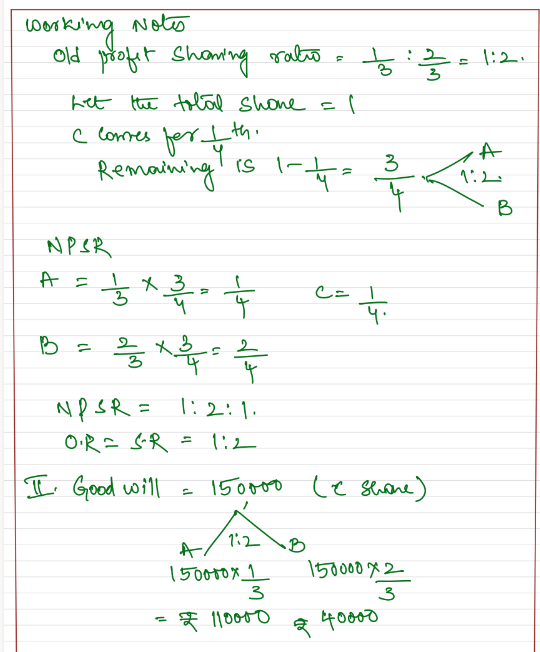 Working Notes
Old profit sharing ratio = 1/3 : 2/3 = 1:2.
Let the total share = 1
C comes for 1/4 th.
Remaining is 1 - 1/4 = 3/4 A
1:2.
B
NPSR
A = 1/3 × 3/4 = 1/4 C = 1/4.
B = 2/3 × 3/4 = 2/4
NPSR = 1:2:1.
O.R = S.R = 1:2
II. Good will = 150000 (C share)
A 1:2 B
150000 × 1/3 150000 × 2/3
= ₹ 110000 ₹ 40000